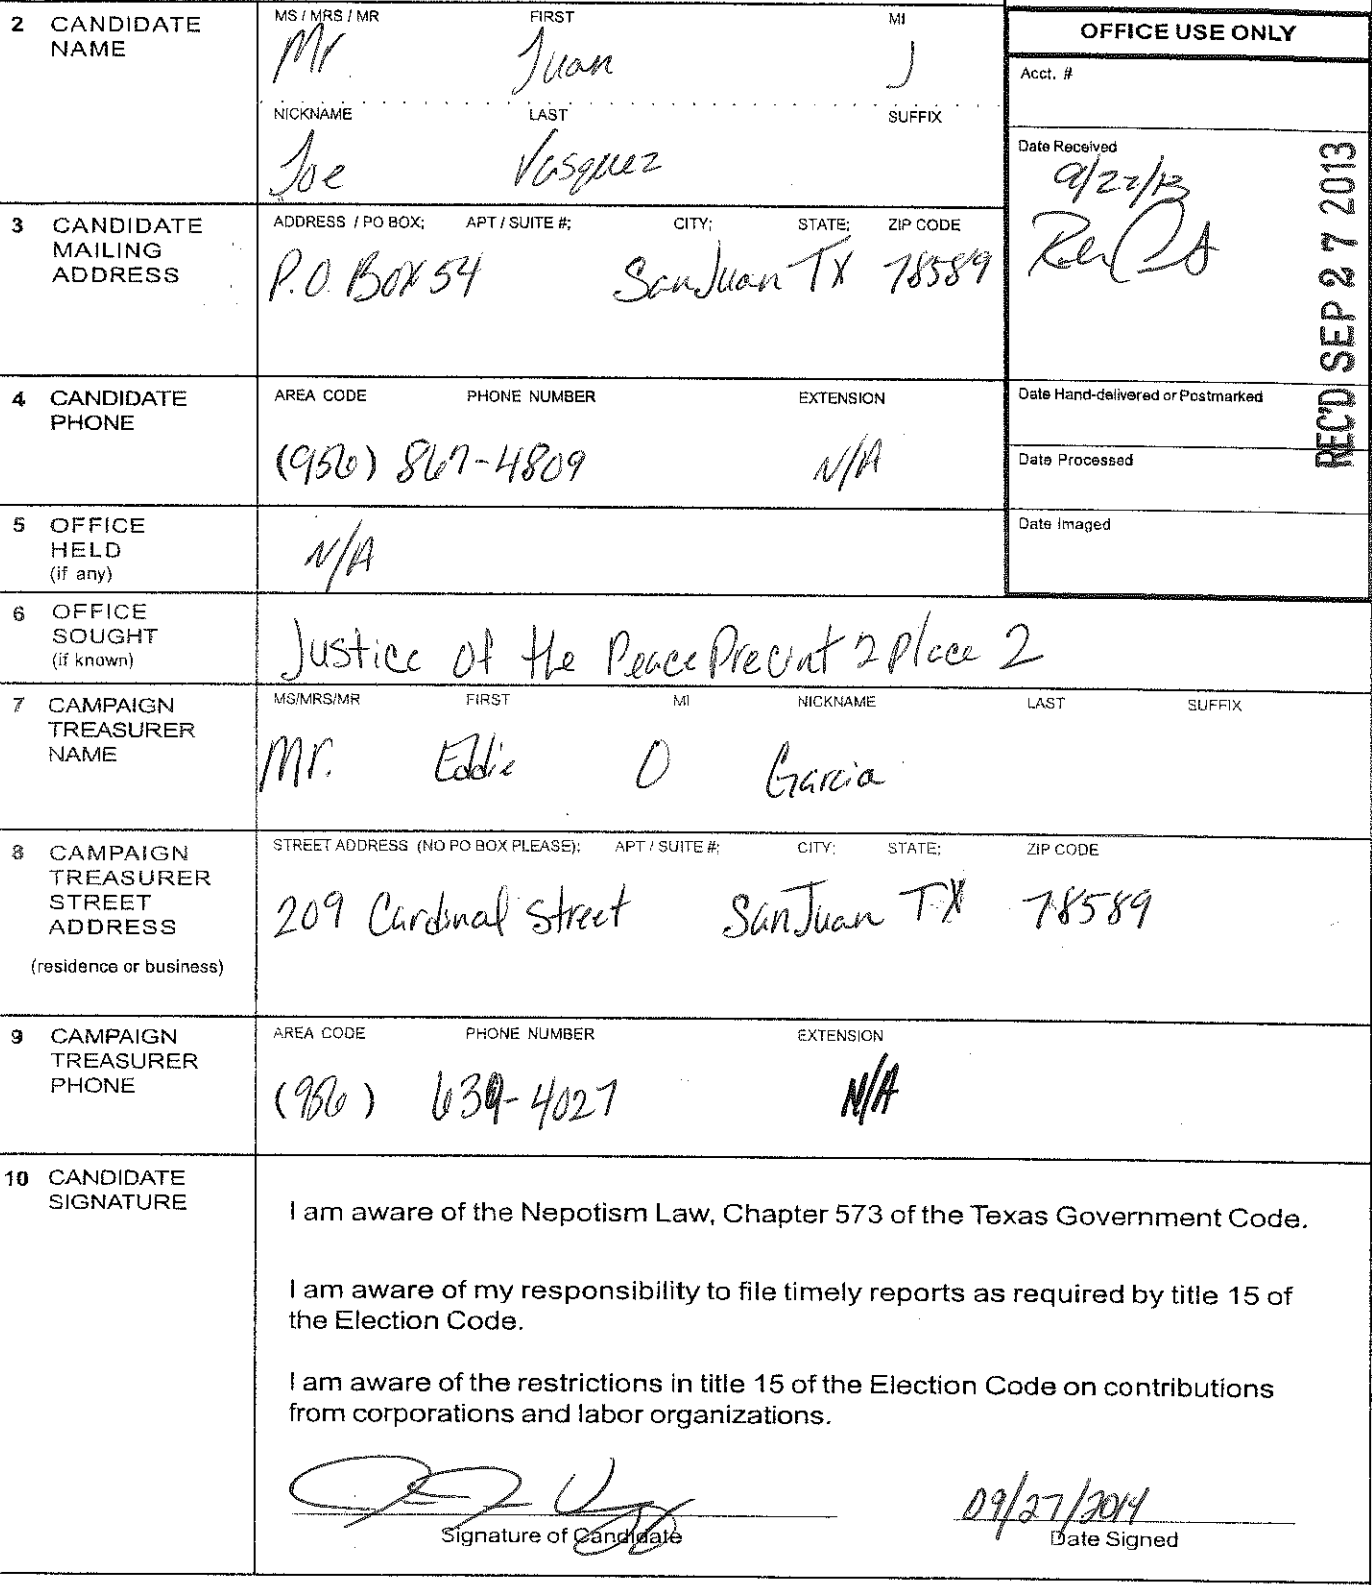 2 CANDIDATE NAME
MS / MRS / MR FIRST MI
Mr Juan J
NICKNAME LAST SUFFIX
Joe Vasquez
OFFICE USE ONLY
Acct. #
Date Received
9/27/13
REC'D SEP 27 2013
3 CANDIDATE MAILING ADDRESS
ADDRESS / PO BOX; APT / SUITE #; CITY; STATE; ZIP CODE
P.O. Box 54 San Juan TX 78589
4 CANDIDATE PHONE
AREA CODE PHONE NUMBER EXTENSION
(956) 867-4809 N/A
Date Hand-delivered or Postmarked
Date Processed
Date Imaged
5 OFFICE HELD (if any)
N/A
6 OFFICE SOUGHT (if known)
Justice of the Peace Precint 2 Place 2
7 CAMPAIGN TREASURER NAME
MS/MRS/MR FIRST MI NICKNAME LAST SUFFIX
Mr. Eddie O Garcia
8 CAMPAIGN TREASURER STREET ADDRESS (residence or business)
STREET ADDRESS (NO PO BOX PLEASE); APT / SUITE #; CITY; STATE; ZIP CODE
209 Cardinal Street San Juan TX 78589
9 CAMPAIGN TREASURER PHONE
AREA CODE PHONE NUMBER EXTENSION
(956) 639-4027 N/A
10 CANDIDATE SIGNATURE
I am aware of the Nepotism Law, Chapter 573 of the Texas Government Code.
I am aware of my responsibility to file timely reports as required by title 15 of
the Election Code.
I am aware of the restrictions in title 15 of the Election Code on contributions
from corporations and labor organizations.
09/27/2014
Signature of Candidate Date Signed